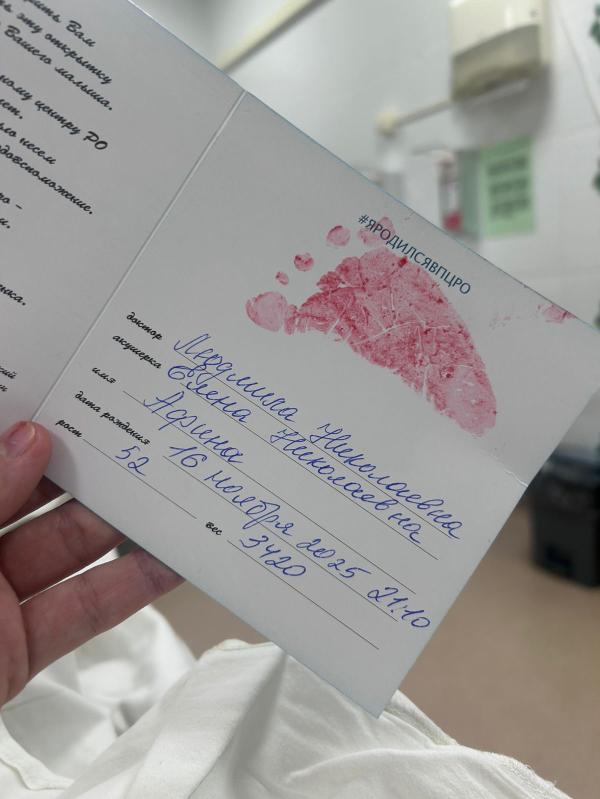 шить Вам
ь эту открытку
Вашего малыша.
ному центру РО
лет.
ью несем
одовспоможение.
ро –
м.
нка.
ский
#ЯРОДИЛСЯВПЦРО
доктор Людмила Николаевна
акушерка Елена Николаевна
имя Афина
дата рождения 16 ноября 2025 21:10
рост 52 вес 3420